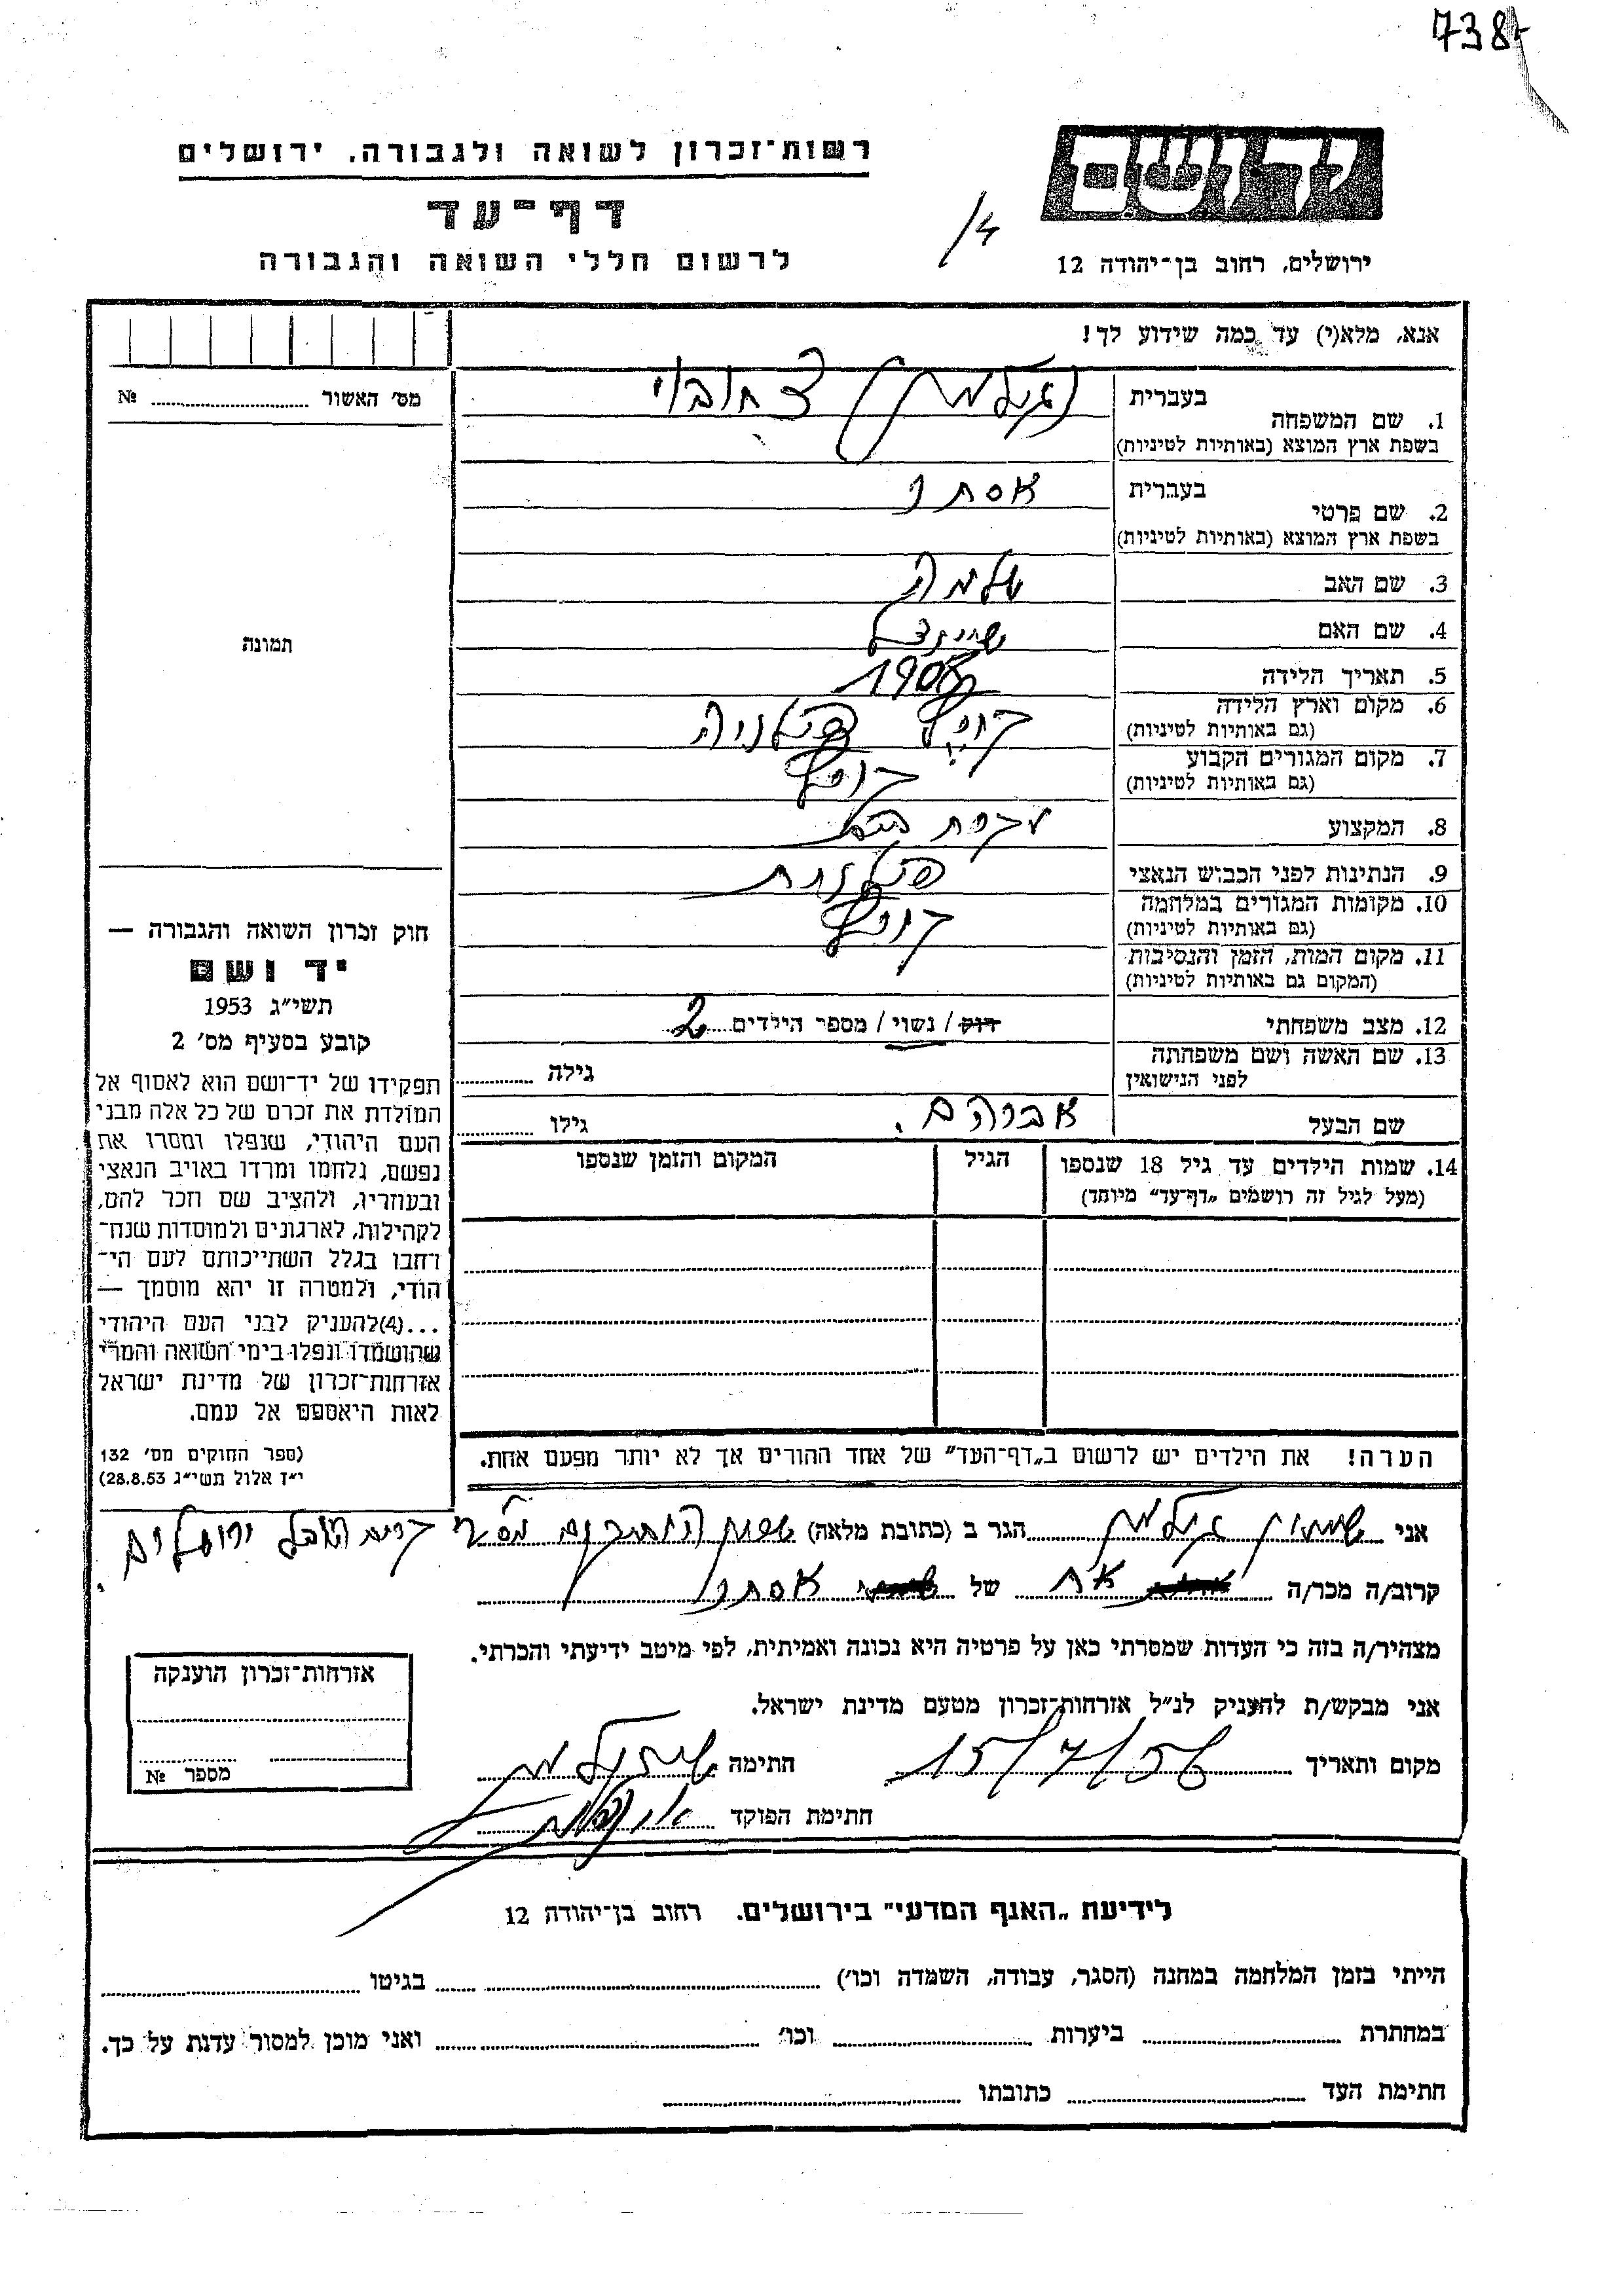 738
רשות־זכרון לשואה ולגבורה. ירושלים
יד ושם
דף־עד
1/4
לרשום חללי השואה והגבורה
ירושלים, רחוב בן־יהודה 12
אנא, מלא(י) עד כמה שידוע לך!
מס׳ האשור № ........
1. שם המשפחה בעברית (גילמן)
בשפת ארץ המוצא (באותיות לטיניות)
2. שם פרטי בעברית אסתר
בשפת ארץ המוצא (באותיות לטיניות)
3. שם האב שלמה
4. שם האם שיינדל
5. תאריך הלידה
6. מקום וארץ הלידה קובל פולניה
(גם באותיות לטיניות)
7. מקום המגורים הקבוע קובל
(גם באותיות לטיניות)
8. המקצוע עקרת בית
9. הנתינות לפני הכבוש הנאצי פולנית
10. מקומות המגורים במלחמה קובל
(גם באותיות לטיניות)
11. מקום המות, הזמן והנסיבות
(המקום גם באותיות לטיניות)
12. מצב משפחתי רוק / נשוי / מספר הילדים 2
13. שם האשה ושם משפחתה גילה
לפני הנישואין
שם הבעל אברהם. גילו
14. שמות הילדים עד גיל 18 שנספו הגיל המקום והזמן שנספו
(מעל לגיל זה רושמים „דף־עד״ מיוחד)
הערה! את הילדים יש לרשום ב„דף־העד״ של אחד ההורים אך לא יותר מפעם אחת.
תמונה
חוק זכרון השואה והגבורה —
יד ושם
תשי״ג 1953
קובע בסעיף מס׳ 2
תפקידו של יד־ושם הוא לאסוף אל
המולדת את זכרם של כל אלה מבני
העם היהודי, שנפלו ומסרו את
נפשם, נלחמו ומרדו באויב הנאצי
ובעוזריו, ולהציב שם וזכר להם,
לקהילות, לארגונים ולמוסדות שנח־
רחבו בגלל השתייכותם לעם הי־
הודי, ולמטרה זו יהא מוסמך —
...(4)להעניק לבני העם היהודי
שהושמדו ונפלו בימי השואה והמרי
אזרחות־זכרון של מדינת ישראל
לאות היאספם אל עמם.
(ספר החוקים מס׳ 132
י״ז אלול תשי״ג 28.8.53)
אני שמעון גילמן הגר ב (כתובת מלאה) קרית היובל ירושלים.
קרוב/ה מכר/ה אח של אסתר
מצהיר/ה בזה כי העדות שמסרתי כאן על פרטיה היא נכונה ואמיתית, לפי מיטב ידיעתי והכרתי.
אני מבקש/ת להעניק לנ״ל אזרחות־זכרון מטעם מדינת ישראל.
מקום ותאריך 15/7/56 חתימה
חתימת הפוקד
אזרחות־זכרון הוענקה
מספר №
לידיעת „האגף המדעי״ בירושלים. רחוב בן־יהודה 12
הייתי בזמן המלחמה במחנה (הסגר, עבודה, השמדה וכו׳) בגיטו
במחתרת ביערות וכו׳ ואני מוכן למסור עדות על כך.
חתימת העד כתובתו